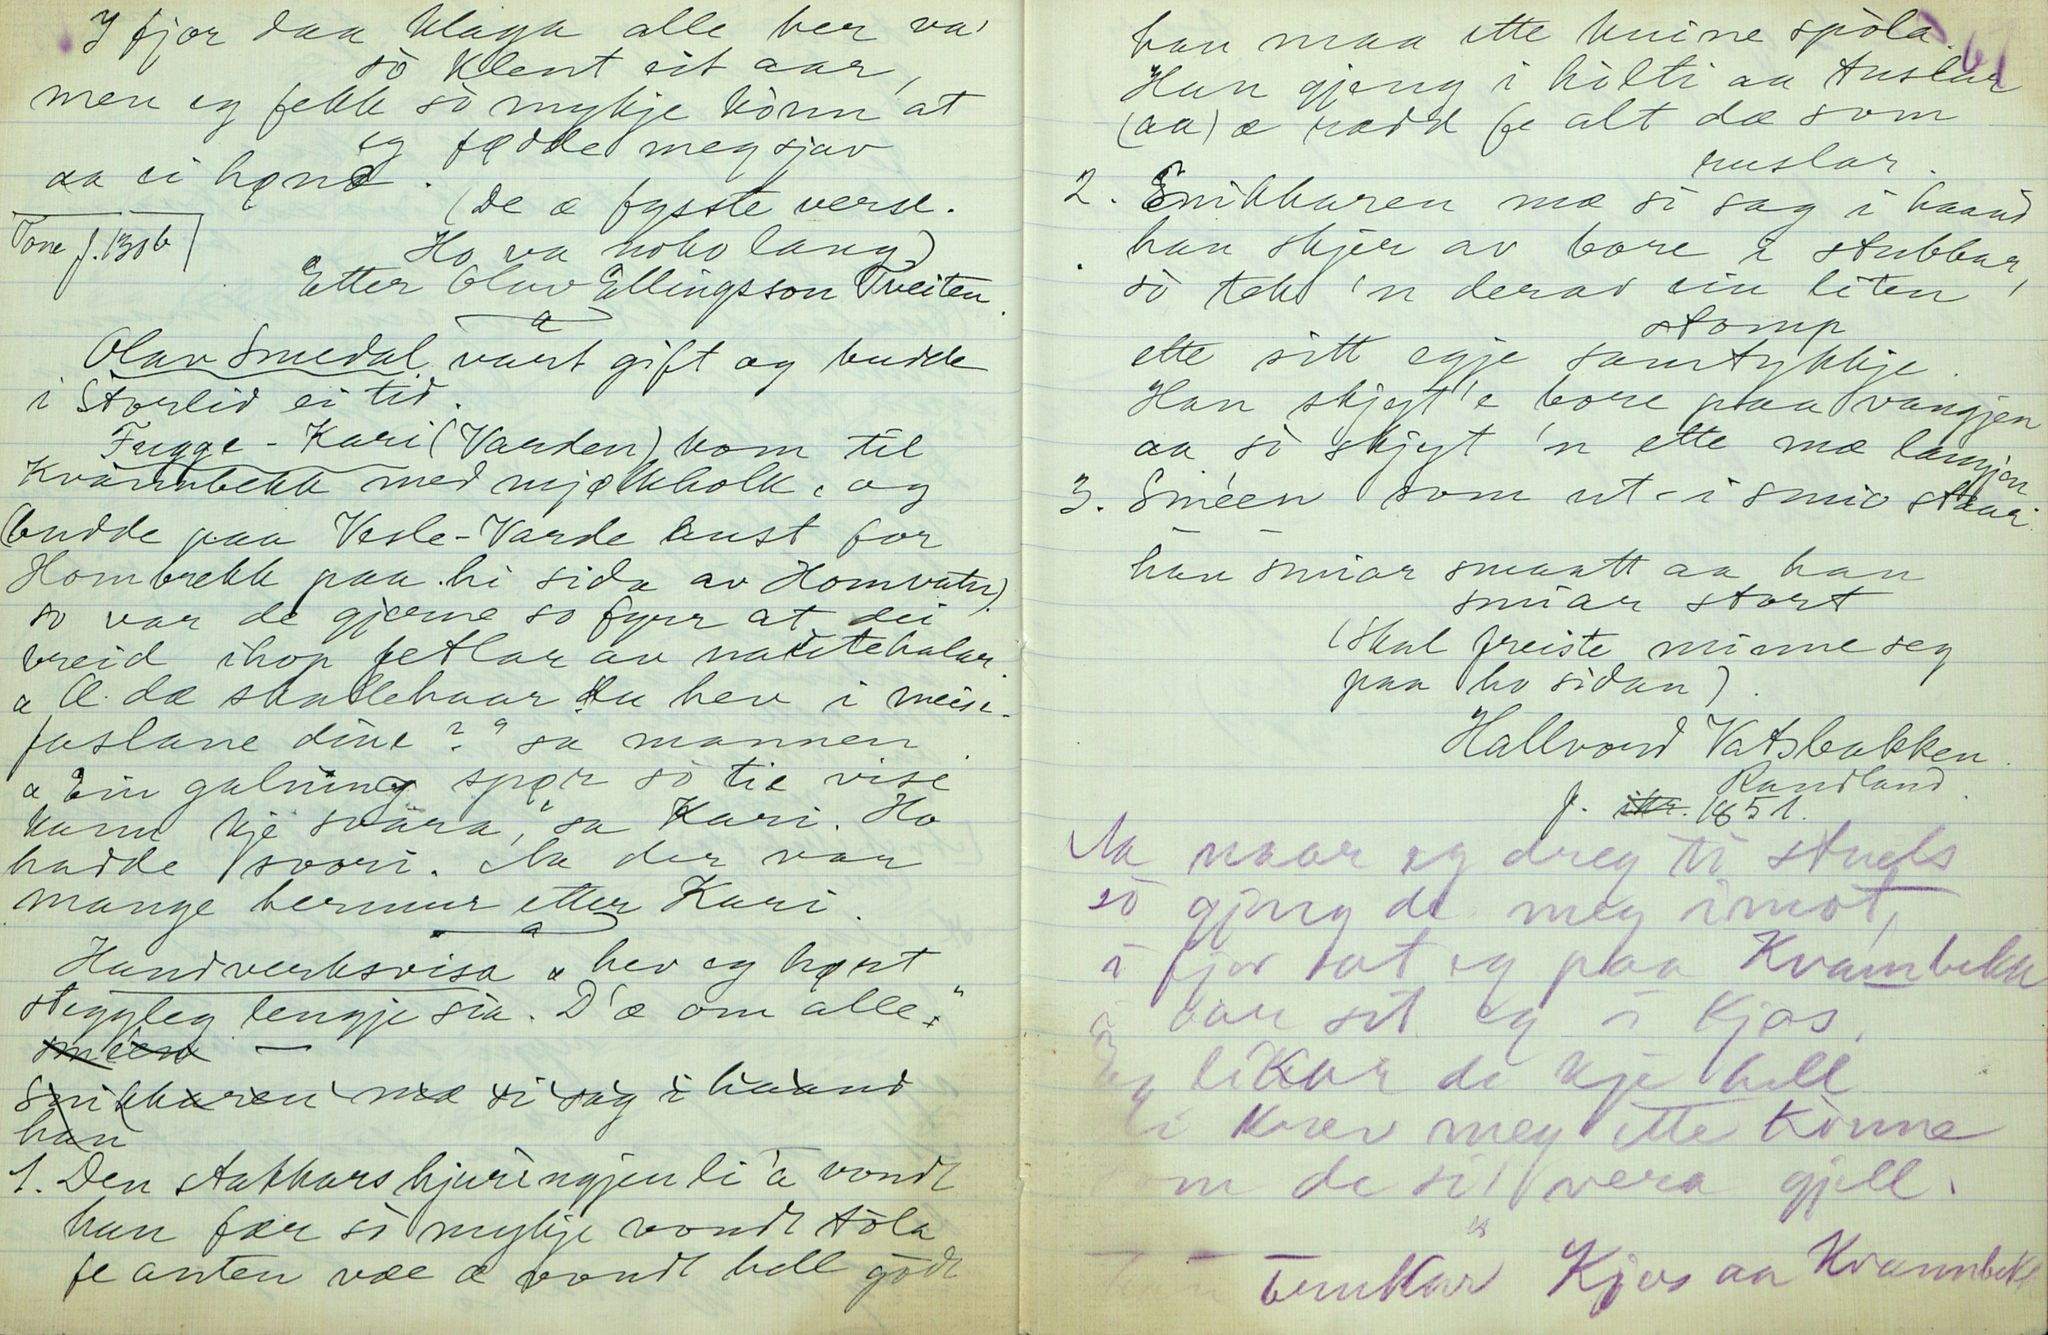 I fjor daa klaga alle her va'
so klent eit aar,
men eg fekk so mykje kònn at
eg fødde meg sjav
aa ei hønd.
(De æ fysste verse.
Ho va noko lang)
Tone f. 130 b
Etter Olav Ellingsson Tveiten.
Olav Smedal vart gift og budde
i Storlid ei tid.
Fugge-Kari (Varden) kom til
Kvannbekk med mjølkholk, og
(budde paa Vesle-Varde aust for
Hombrekk paa hi sida av Homvatn).
so var de gjerne so fyrr at dei
vreid ihop fetlar av nautehalar.
"Æ dæ skallehaar du hev i meise-
faslane dine?" sa mannen.
"Ein galning spør so tie vise
kann kje svara," sa Kari. Ho
hadde svori. Aa der var
mange hermur etter Kari.
Handverksvisa "hev eg høyrt
steggleg lengje sia. D'æ om alle."
sméen —
Snikkaren mæ si sag i haand
han
1. Den stakkars hjuringjen li'e vondt
han fær so mykje vondt tòla
fe anten væe æ vondt hell godt
han maa ette kuine spòla.
Han gjeng i hòlti aa tuslar
(aa) æ rædd fe alt dæ som
ruslar.
2. Snikkaren mæ si sag i haand
han skjer av bore i stubbar,
so tek 'n derav ein liten
stomp
ette sitt egje samtykkje.
Han skjøyt'e bore paa vangjen
aa so skjøyt 'n ette mæ langjen
3. Sméen som ut-i smio staar
han smiar smaatt aa han
smiar stort
(Skal freiste minne seg
paa ho sidan).
Hallvord Vatsbakken.
Raudland.
f. 1851.
Aa naar eg dreg ti stuels
so gjeng de meg imot,
i fjor sat eg paa Kvambekk
i aar sit eg i Kjos.
Eg likar de kje hell
krev meg ette kònne
om de si' vera gjell.
Kjos aa Kvannbekk